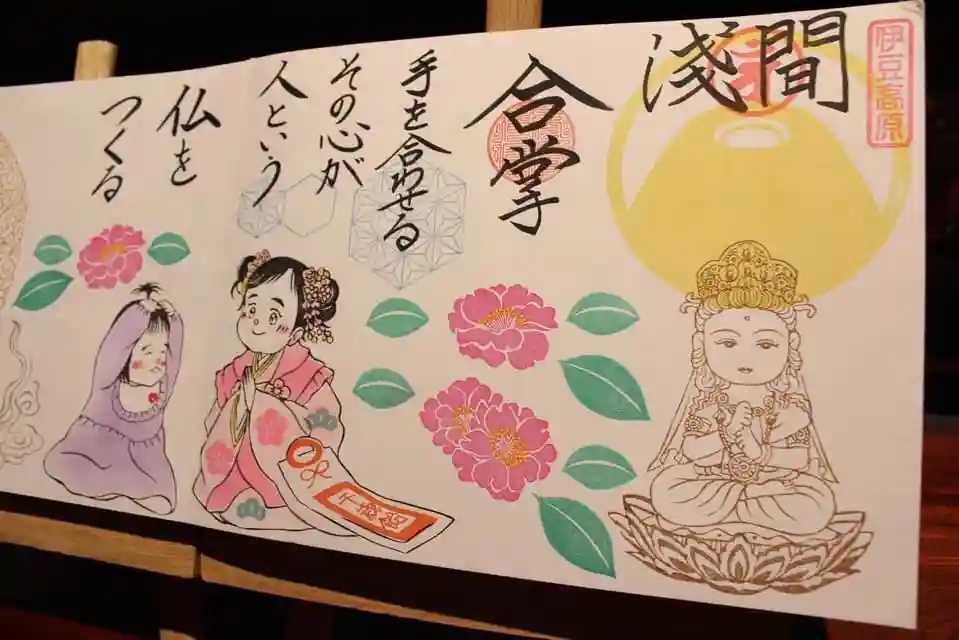 伊豆高原
淺間
合掌
手を合わせる
その心が
人という
仏を
つくる
千歳飴